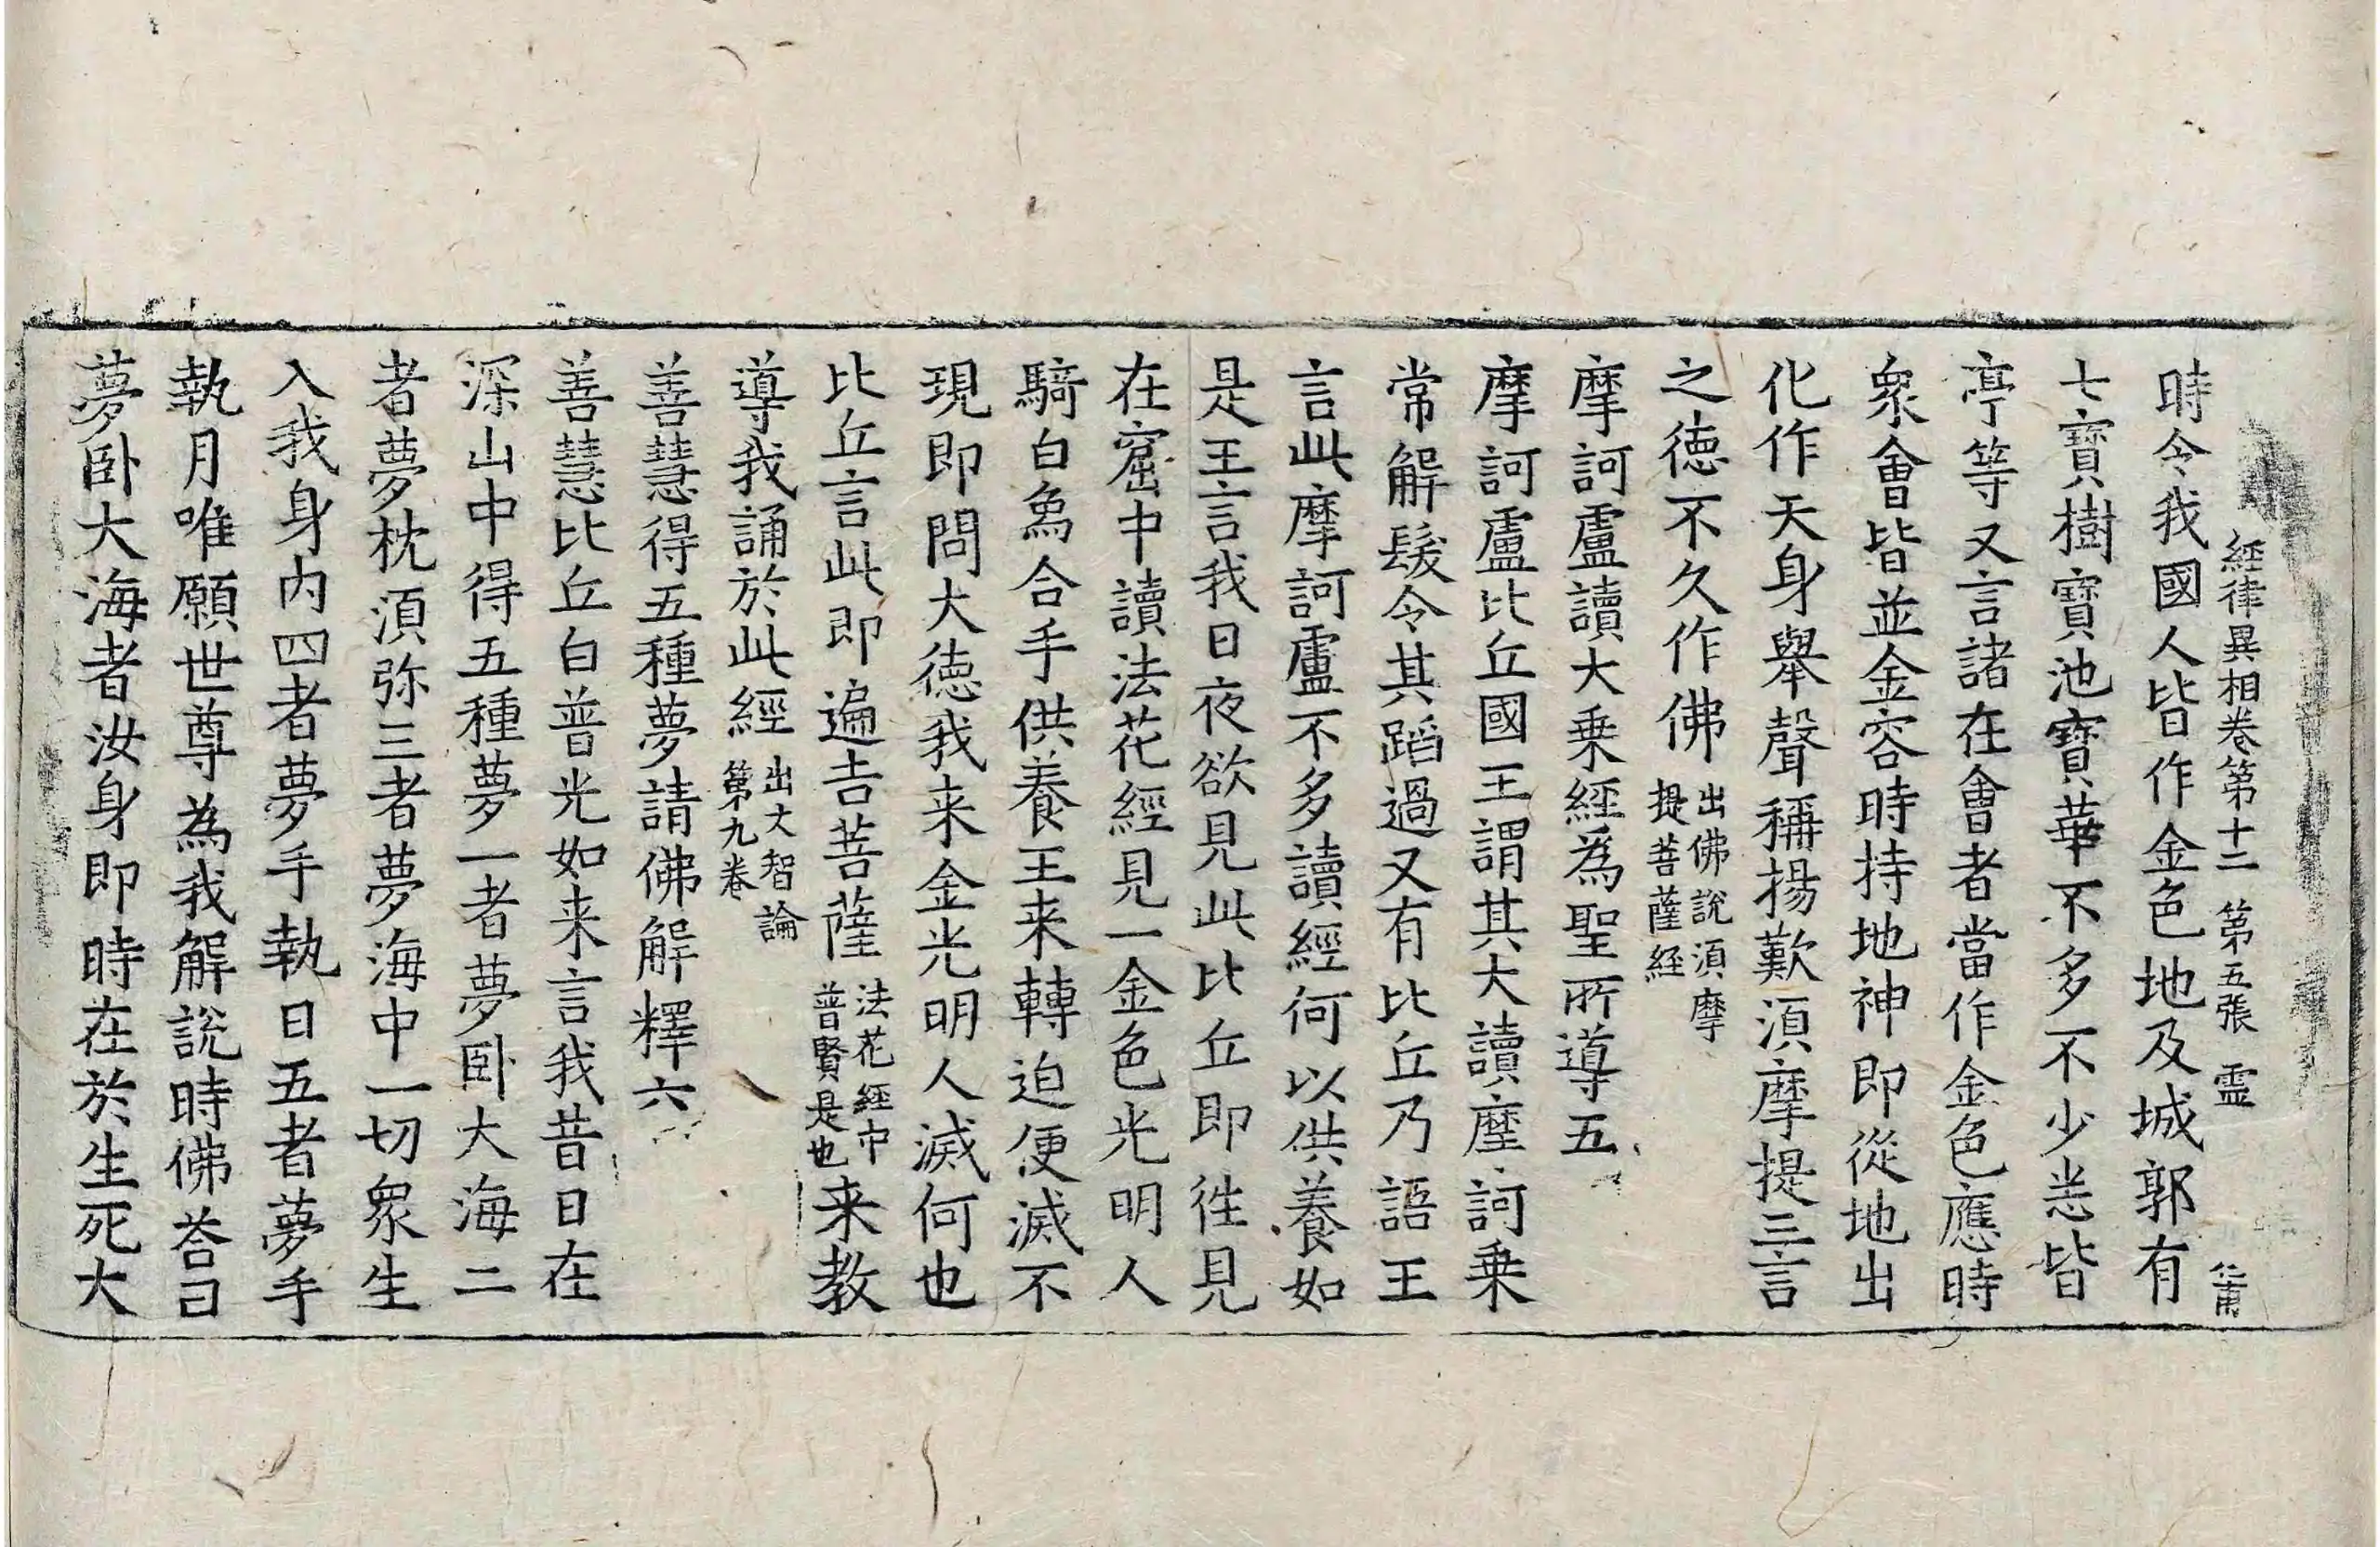 經律異相卷第十二 第五張 霊
時令我國人皆作金色地及城郭有
七寶樹寶池寶華不多不少悉皆
亭等又言諸在會者當作金色應時
衆會皆並金容時持地神即從地出
化作天身舉聲稱揚歎湏摩提三言
之徳不久作佛 出佛說湏摩提菩薩經
摩訶盧讀大乗經為聖所導五
摩訶盧比丘國王謂其大讀摩訶乗
常解髮令其蹈過又有比丘乃語王
言此摩訶盧不多讀經何以供養如
是王言我日夜欲見此比丘即徃見
在窟中讀法花經見一金色光明人
騎白象合手供養王来轉迫便滅不
現即問大徳我来金光明人滅何也
比丘言此即遍吉菩薩 法花經中普賢是也 来教
導我誦於此經 出大智論第九卷
善慧得五種夢請佛解釋六
善慧比丘白普光如来言我昔日在
深山中得五種夢一者夢卧大海二
者夢枕湏弥三者夢海中一切衆生
入我身内四者夢手執日五者夢手
執月唯願世尊為我解說時佛荅曰
夢卧大海者汝身即時在於生死大